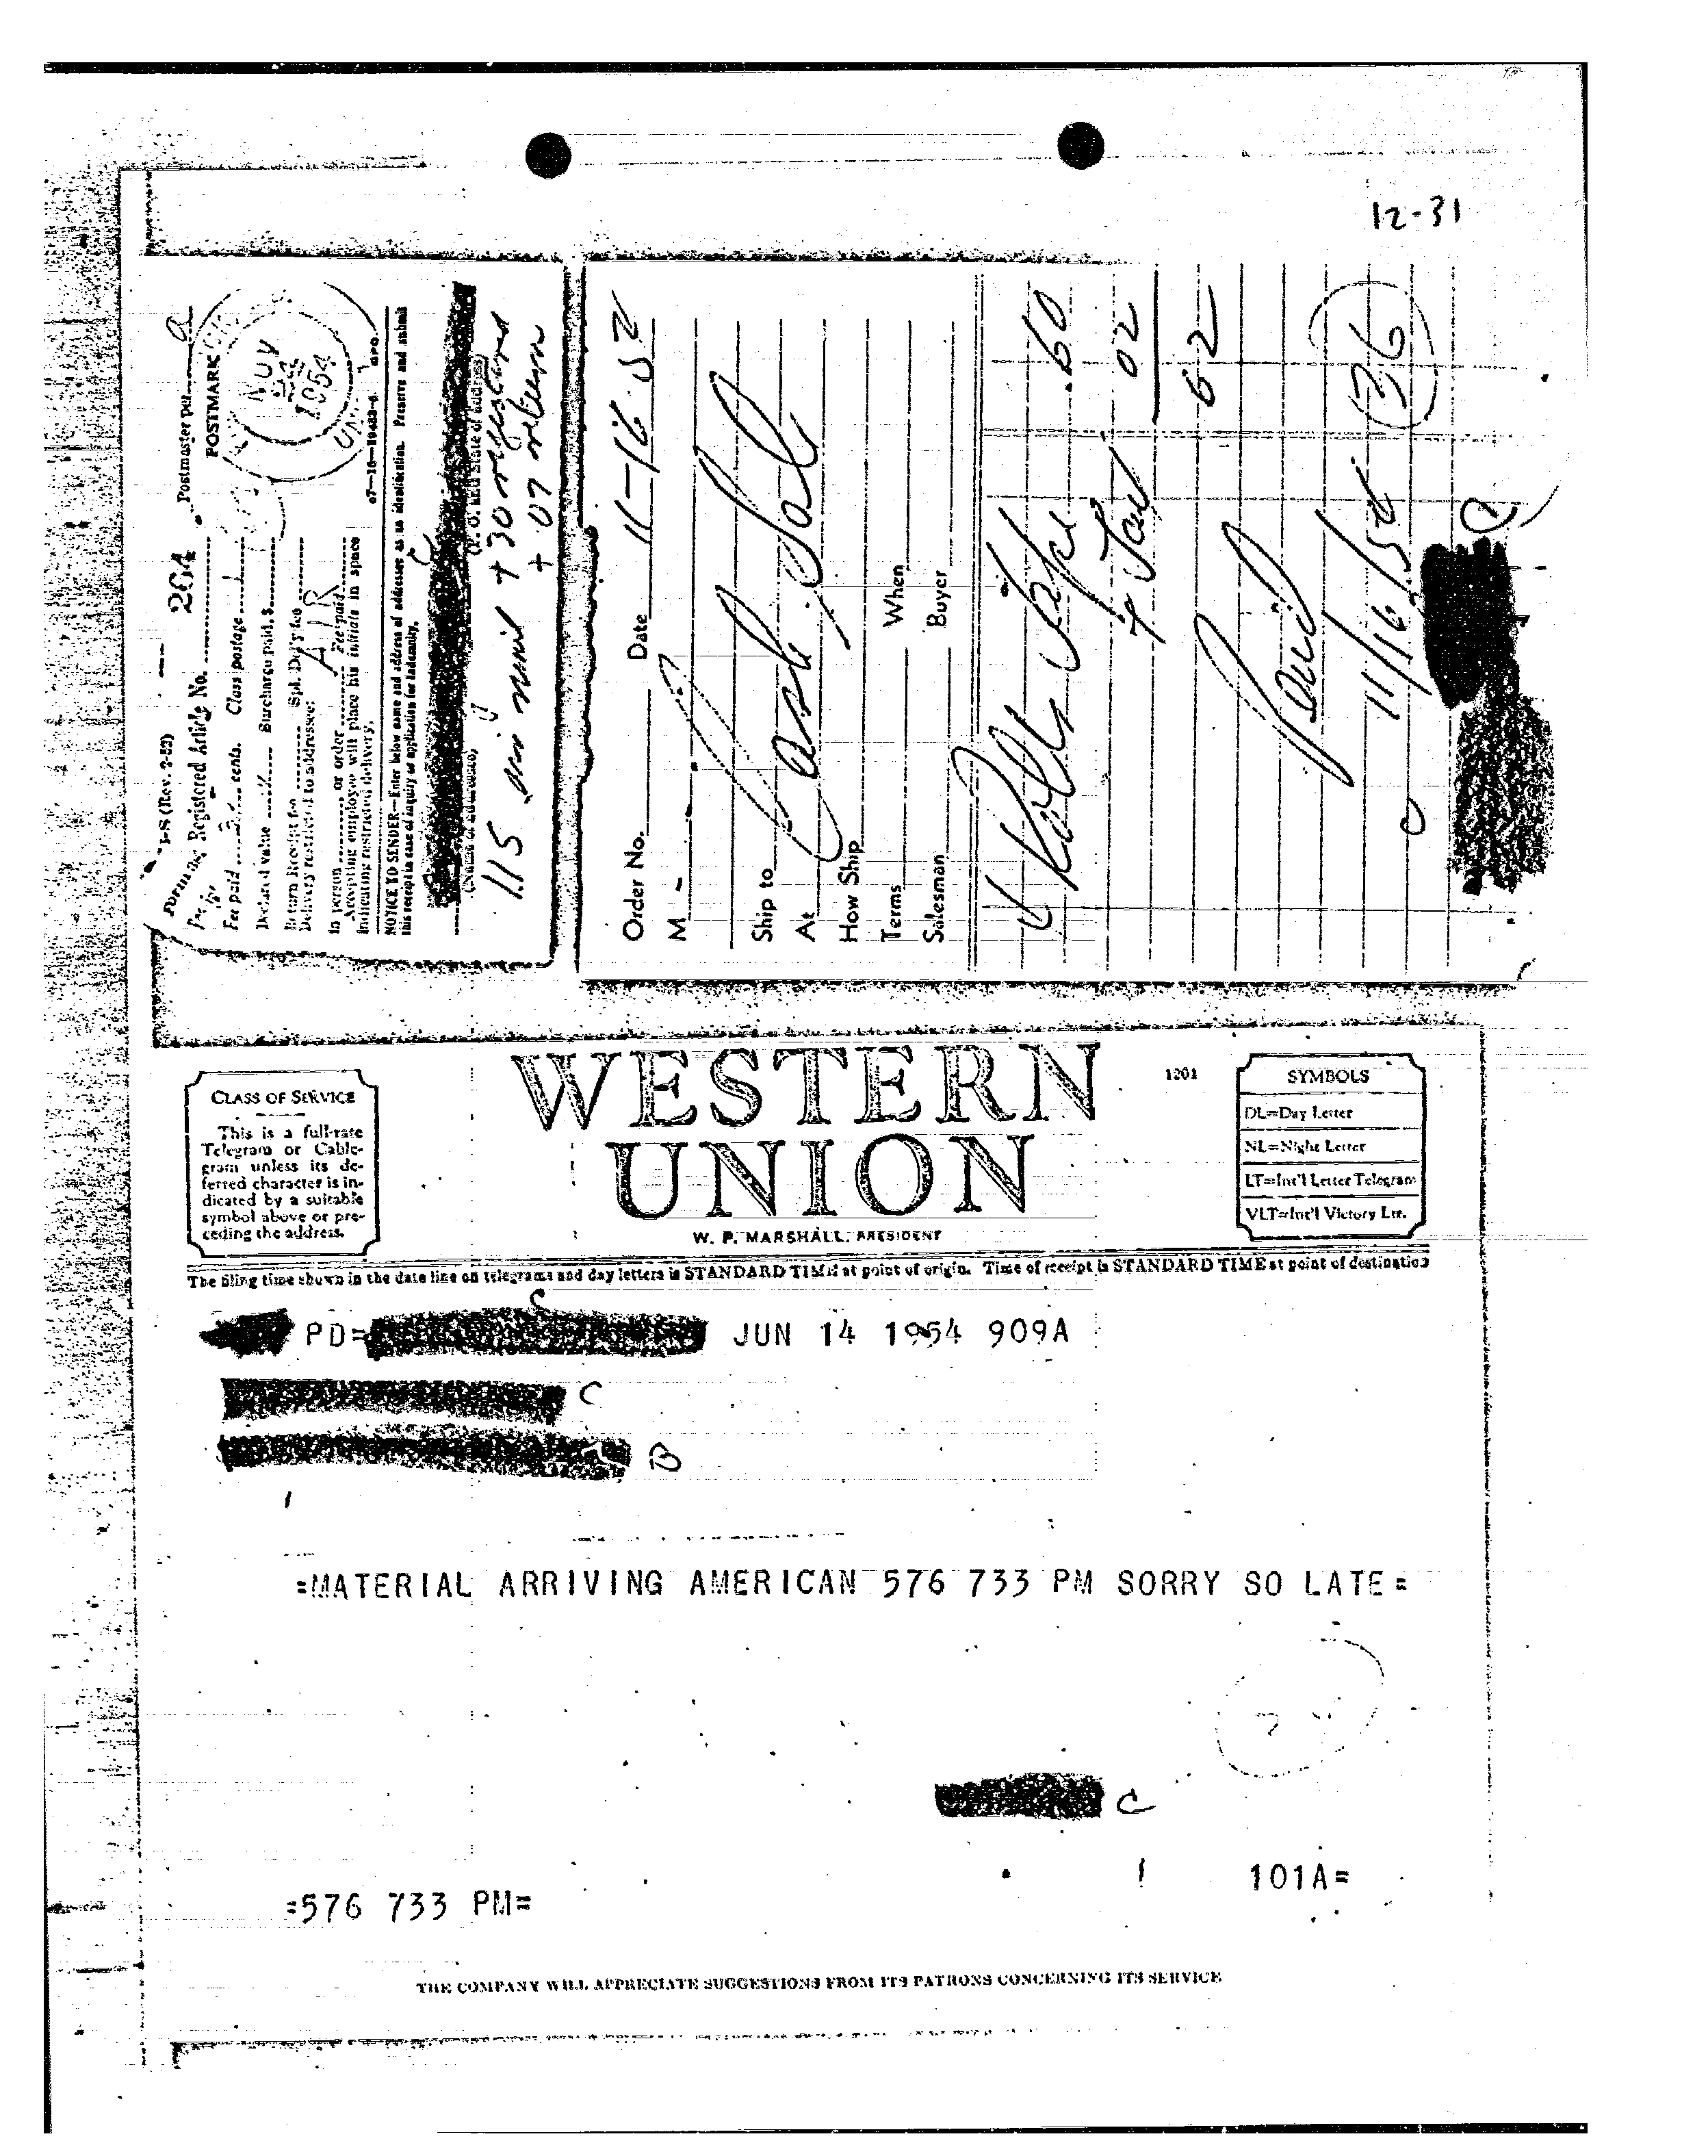 12-31
POD Form
(Rev. 2-52)
Registered Article No. 264
Postmaster per
Fee paid cents. Class postage
POSTMARK
Declared value Surcharge paid, $
NOV
22
1954
Return Receipt fee Spl. Del'y fee
Delivery restricted to addressee: AIR
in person or order Fee paid
Accepting employee will place his initials in space
indicating restricted delivery.
GPO
NOTICE TO SENDER—Enter below name and address of addressee as an identification. Preserve and submit
this receipt in case of inquiry or application for indemnity.
C
(Name of addressee) (P. O. and State of address)
1.15 air mail + 30 registered
+ 07 return
Order No. Date 11-16
M
Cash Sale
Ship to
At
How Ship
Terms When
Salesman Buyer
Rolls .60
+ Tax 02
62
Paid
11/16/54
36
C
CLASS OF SERVICE
This is a full-rate
Telegram or Cable-
gram unless its de-
ferred character is in-
dicated by a suitable
symbol above or pre-
ceding the address.
WESTERN
UNION
W. P. MARSHALL, PRESIDENT
1201
SYMBOLS
DL=Day Letter
NL=Night Letter
LT=Int'l Letter Telegram
VLT=Int'l Victory Ltr.
The filing time shown in the date line on telegrams and day letters is STANDARD TIME at point of origin. Time of receipt is STANDARD TIME at point of destination
C
PD= JUN 14 1954 909A
C
B
=MATERIAL ARRIVING AMERICAN 576 733 PM SORRY SO LATE=
C
101A=
=576 733 PM=
THE COMPANY WILL APPRECIATE SUGGESTIONS FROM ITS PATRONS CONCERNING ITS SERVICE